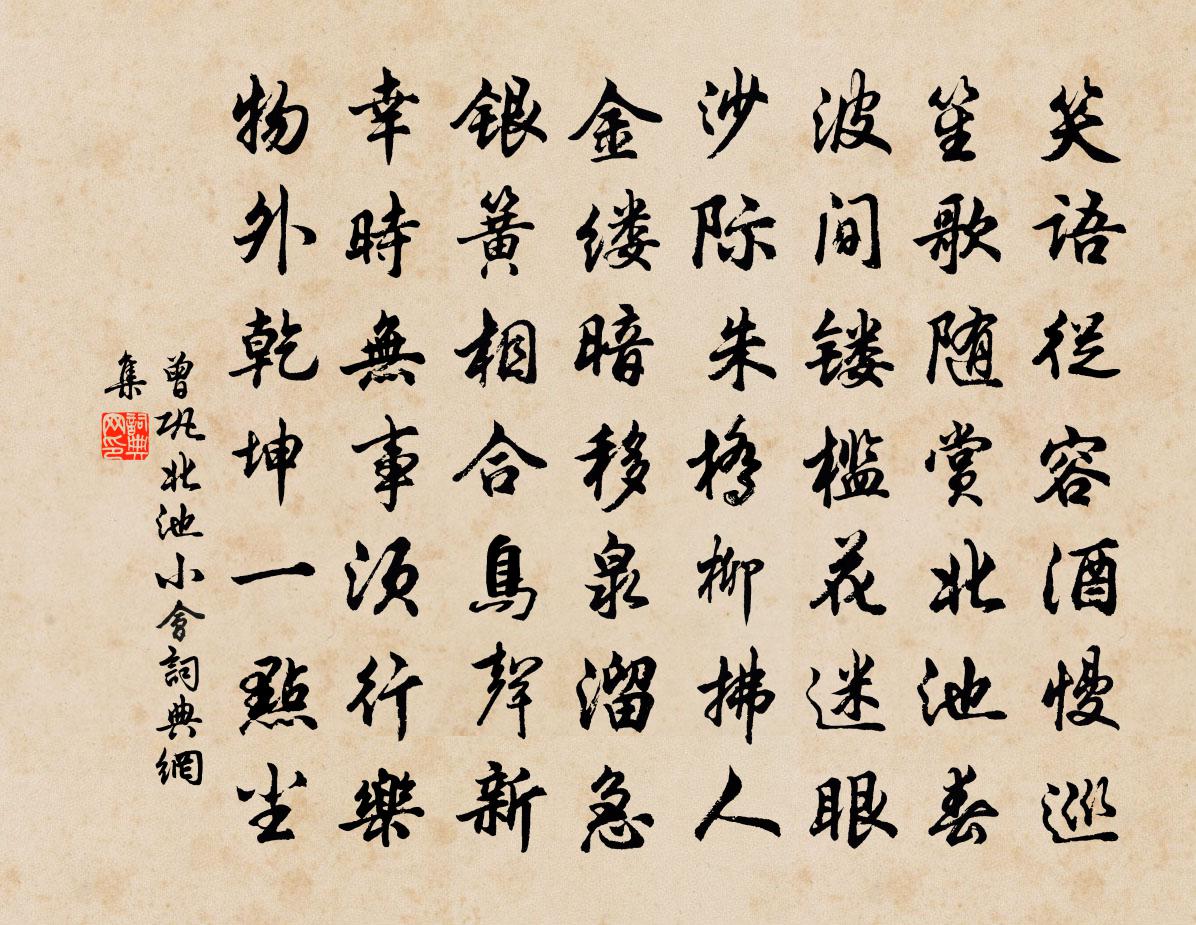 笑语從容酒慢巡
笙歌随赏北池春
波间镂槛花迷眼
沙际朱橋柳拂人
金缕暗移泉溜急
銀簧相合鳥聲新
幸時無事須行樂
物外乾坤一點尘
曾巩北池小會詞典網
集
詞典
网印